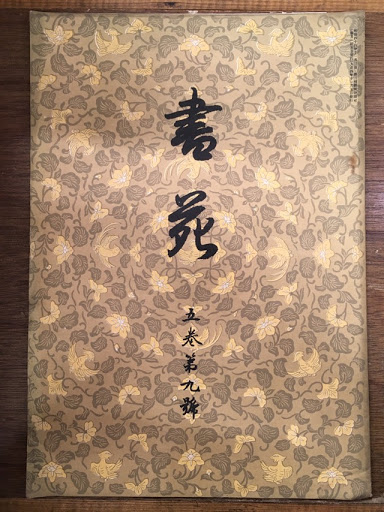 書苑
五卷第九號